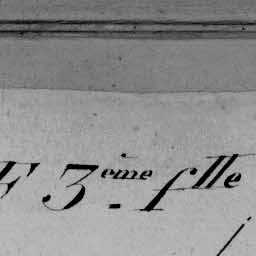 F 3.ème f.lle